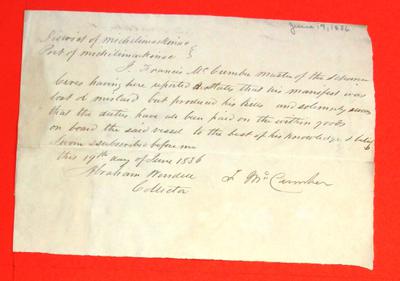 June 19, 1836
District of Michilimackinac
Port of Michilimackinac
I. Francis McCumber master of the schooner
Ceres having here reported & states that his manifest was
lost or mislaid but produced his bills and solemnly swears
that the duties have all been paid on the within goods
on board the said vessel to the best of his knowledge & belief
Sworn & subscribed before me
this 19th day of June 1836
Abraham Wendell F McCumber
Collector